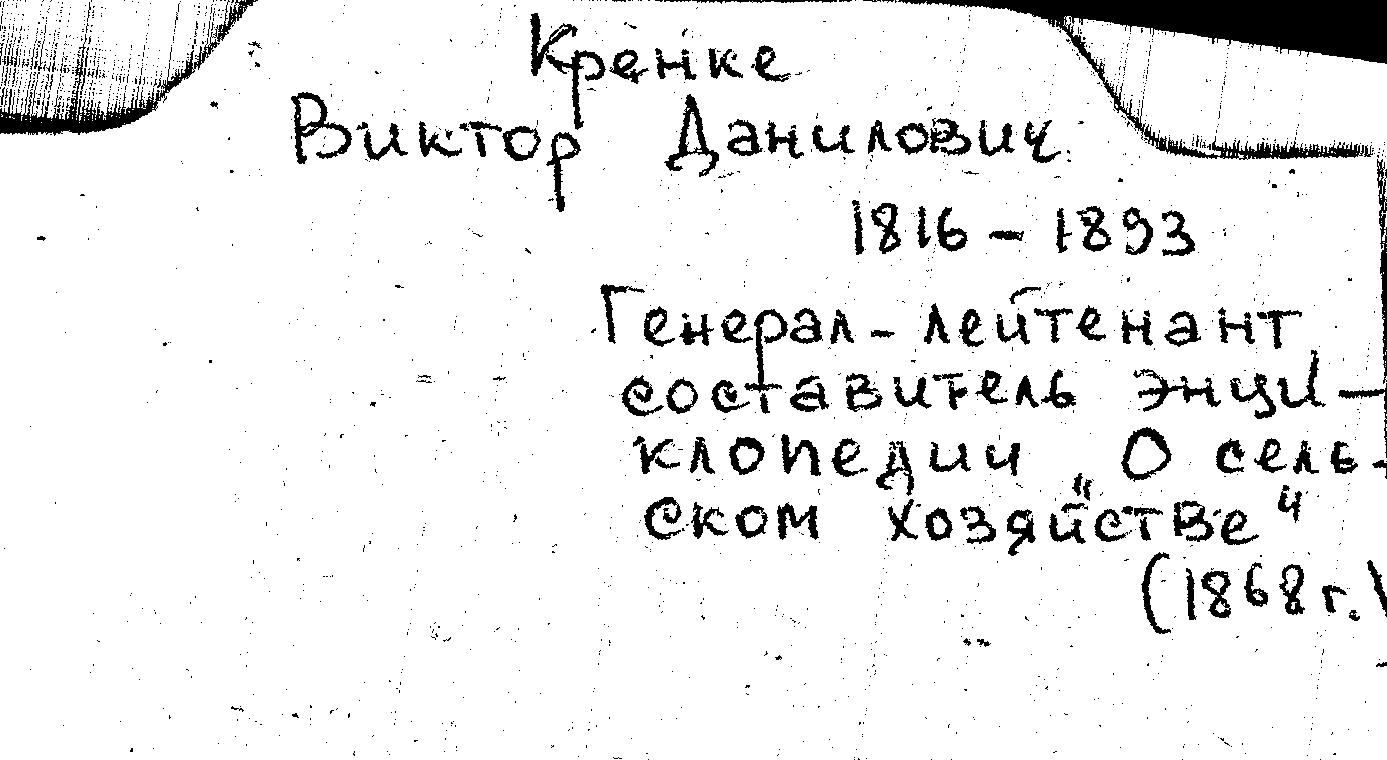 Кренке
Виктор Данилович
1816 - 1893
Генерал-лейтенант,
составитель энци-
клопедии „О сель-
ском хозяйстве"
(1868 г.)